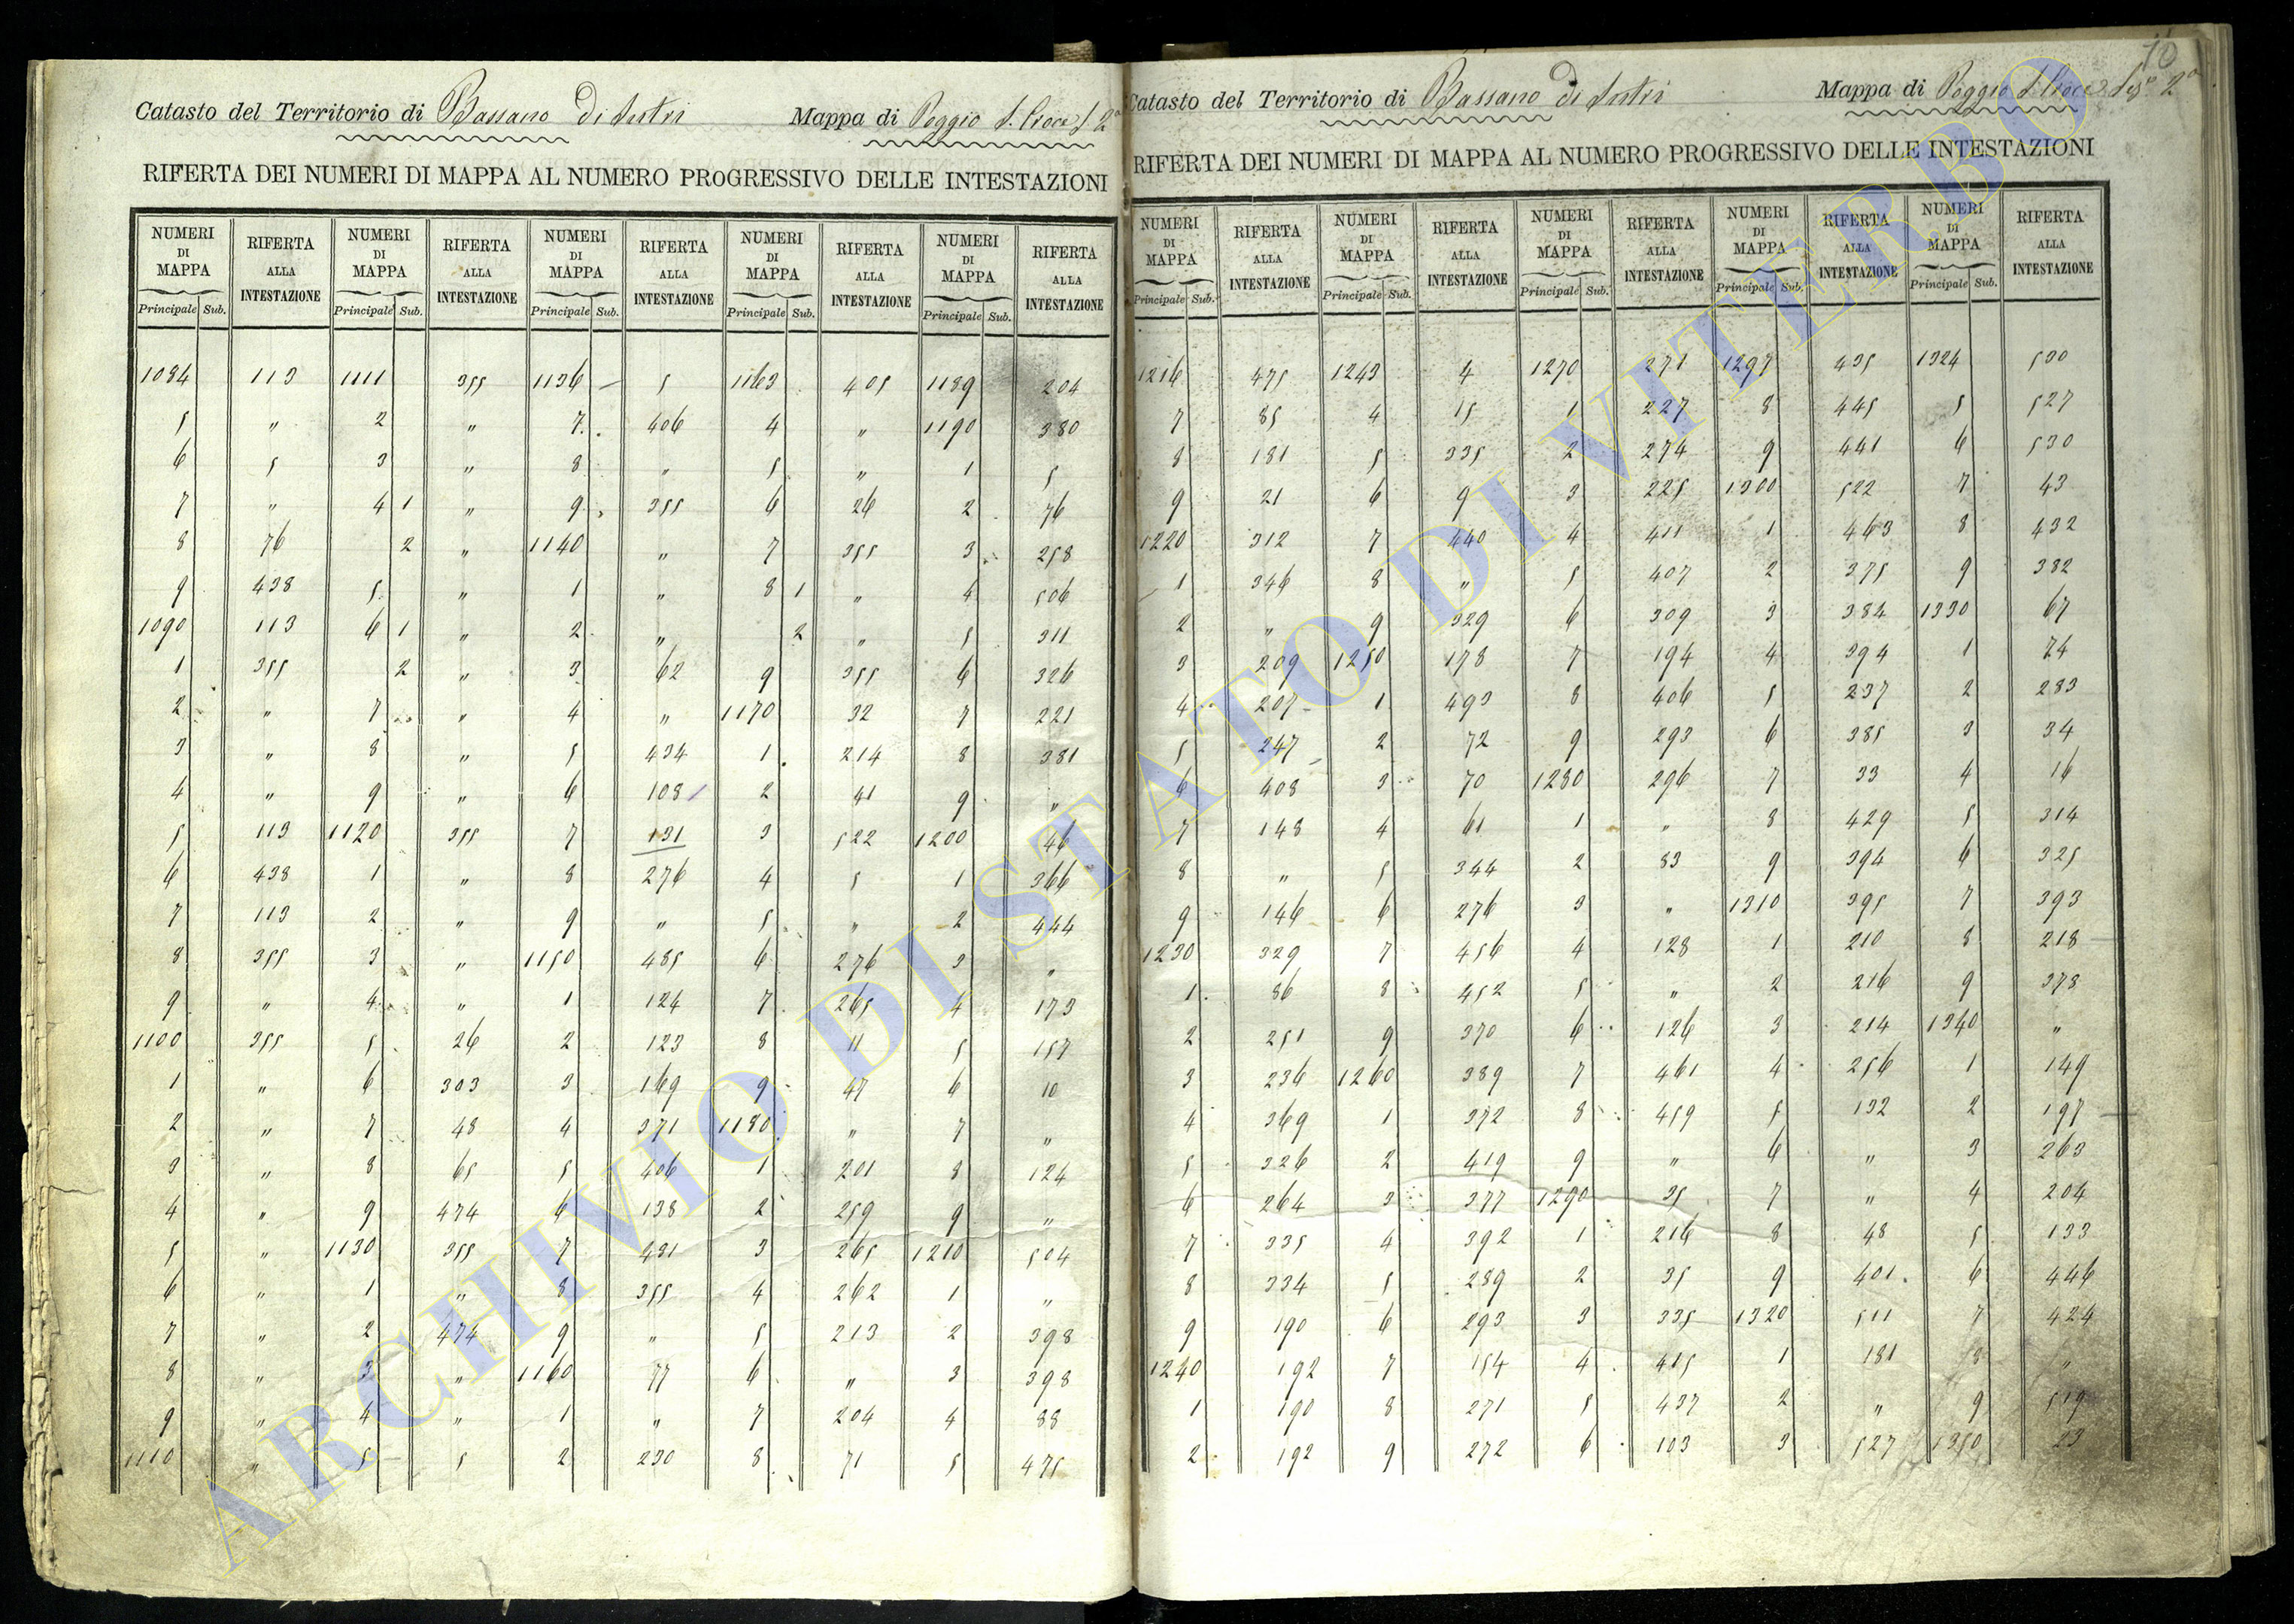 10
Catasto del Territorio di Bassano di Sutri Mappa di Poggio S. Croce S. 2a
RIFERTA DEI NUMERI DI MAPPA AL NUMERO PROGRESSIVO DELLE INTESTAZIONI
NUMERI DI MAPPA RIFERTA ALLA INTESTAZIONE NUMERI DI MAPPA RIFERTA ALLA INTESTAZIONE NUMERI DI MAPPA RIFERTA ALLA INTESTAZIONE NUMERI DI MAPPA RIFERTA ALLA INTESTAZIONE NUMERI DI MAPPA RIFERTA ALLA INTESTAZIONE
Principale Sub. Principale Sub. Principale Sub. Principale Sub. Principale Sub.
1084 113 1111 355 1136 – 5 1163 405 1189 204
5 " 2 " 7 406 4 " 1190 380
6 5 3 " 8 " 5 " 1 5
7 " 4 1 " 9 355 6 26 2 76
8 76 2 " 1140 " 7 355 3 258
9 438 5 " 1 " 8 1 " 4 506
1090 113 6 1 " 2 " 2 " 5 311
1 355 2 " 3 62 9 355 6 326
2 " 7 " 4 " 1170 32 7 221
3 " 8 " 5 434 1 214 8 381
4 " 9 " 6 108 2 41 9 "
5 113 1120 355 7 131 3 522 1200 46
6 438 1 " 8 276 4 5 1 366
7 113 2 " 9 " 5 " 2 444
8 355 3 " 1150 485 6 276 3 "
9 " 4 " 1 124 7 265 4 173
1100 355 5 26 2 123 8 11 5 157
1 " 6 303 3 169 9 47 6 10
2 " 7 48 4 371 1180 " 7 "
3 " 8 65 5 406 1 201 8 124
4 " 9 474 6 138 2 259 9 "
5 " 1130 355 7 431 3 265 1210 504
6 " 1 " 8 355 4 262 1 "
7 " 2 474 9 " 5 213 2 398
8 " 3 " 1160 77 6 " 3 398
9 " 4 " 1 " 7 204 4 88
1110 " 5 5 2 230 8 71 5 475
Catasto del Territorio di Bassano di Sutri Mappa di Poggio S. Croce 2a
RIFERTA DEI NUMERI DI MAPPA AL NUMERO PROGRESSIVO DELLE INTESTAZIONI
NUMERI DI MAPPA RIFERTA ALLA INTESTAZIONE NUMERI DI MAPPA RIFERTA ALLA INTESTAZIONE NUMERI DI MAPPA RIFERTA ALLA INTESTAZIONE NUMERI DI MAPPA RIFERTA ALLA INTESTAZIONE NUMERI DI MAPPA RIFERTA ALLA INTESTAZIONE
Principale Sub. Principale Sub. Principale Sub. Principale Sub. Principale Sub.
1216 475 1243 4 1270 271 1297 435 1324 530
7 85 4 15 1 227 8 445 5 527
8 181 5 335 2 274 9 441 6 530
9 21 6 9 3 225 1300 522 7 43
1220 312 7 440 4 411 1 463 8 432
1 346 8 " 5 407 2 375 9 382
2 " 9 329 6 309 3 384 1330 67
3 209 1250 178 7 194 4 394 1 74
4 207 1 493 8 406 5 237 2 283
5 247 2 72 9 293 6 385 3 34
6 408 3 70 1280 296 7 33 4 16
7 148 4 61 1 " 8 429 5 314
8 " 5 344 2 83 9 394 6 325
9 146 6 276 3 " 1310 395 7 393
1230 329 7 456 4 128 1 210 8 218
1 86 8 452 5 " 2 216 9 378
2 251 9 370 6 126 3 214 1340 "
3 236 1260 389 7 461 4 256 1 149
4 369 1 372 8 459 5 132 2 197
5 326 2 419 9 " 6 " 3 263
6 264 3 377 1290 35 7 " 4 204
7 335 4 392 1 216 8 48 5 133
8 334 5 289 2 35 9 401 6 446
9 190 6 293 3 335 1320 511 7 424
1240 192 7 154 4 415 1 181 8 "
1 190 8 271 5 437 2 " 9 519
2 192 9 272 6 103 3 527 1350 23
ARCHIVIO DI STATO DI VITERBO